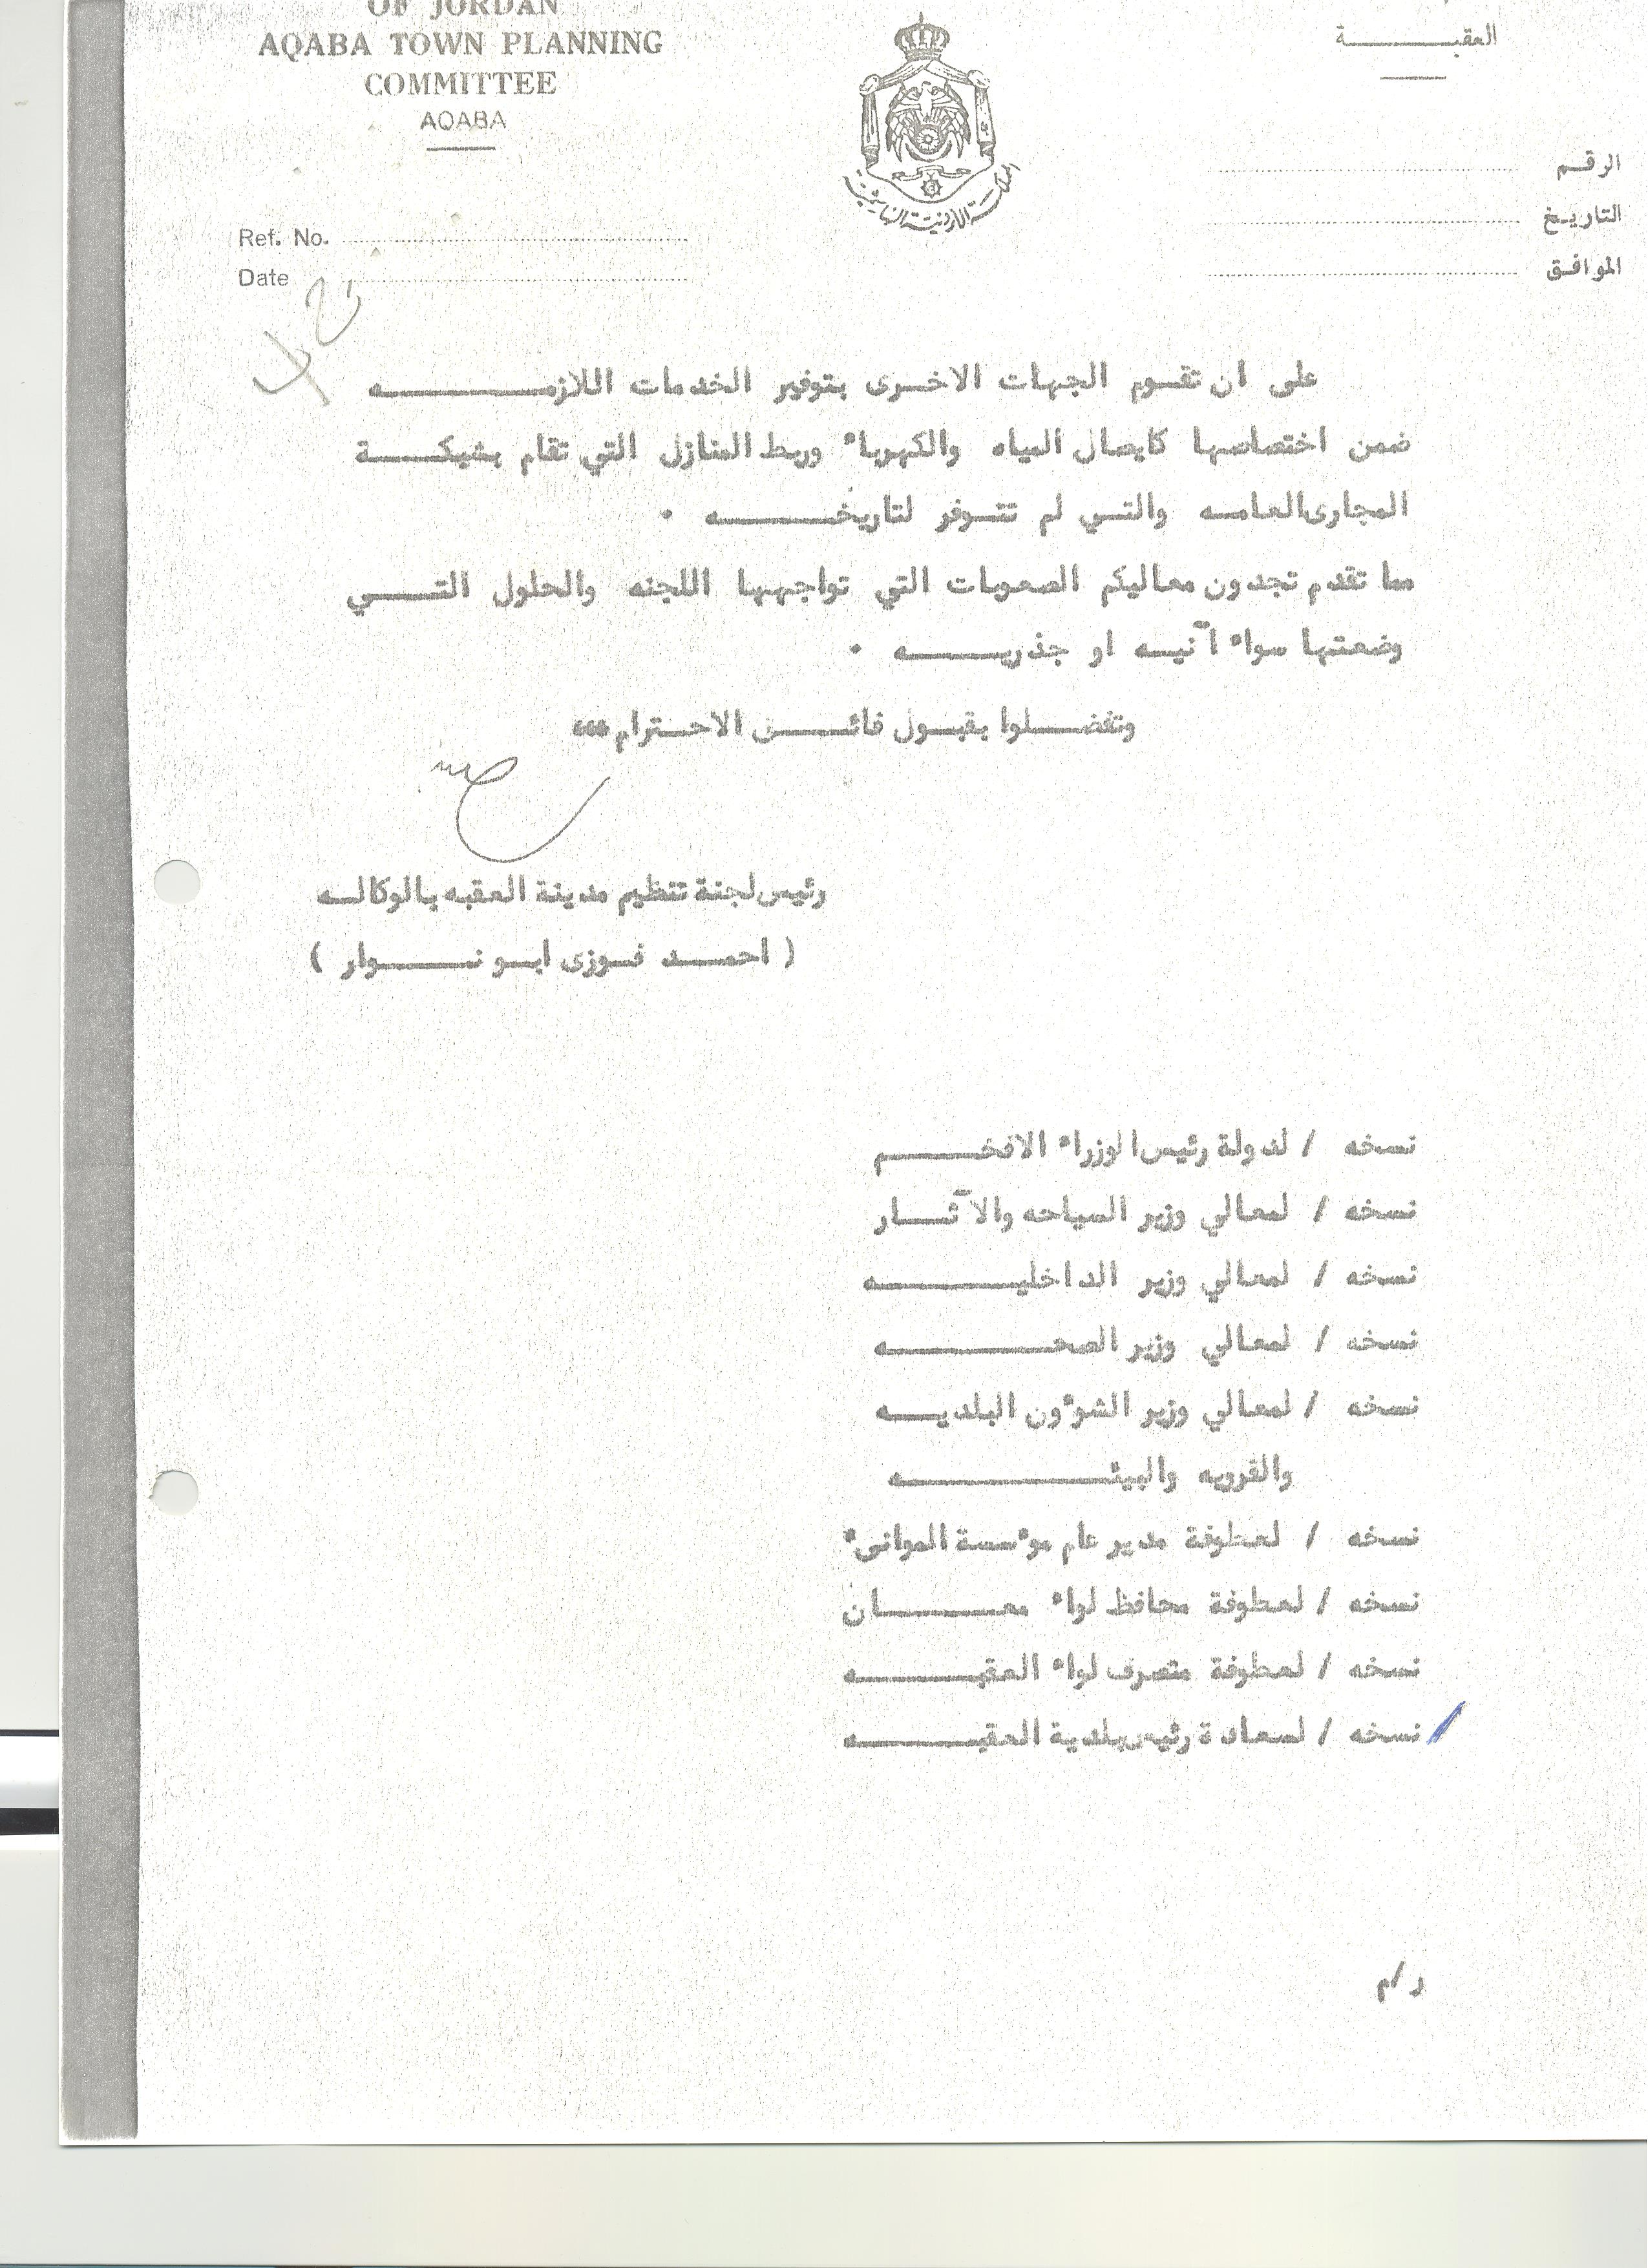 OF JORDAN
AQABA TOWN PLANNING
COMMITTEE
AQABA
Ref. No.
Date
العقبـــة
الرقـم
التاريـخ
الموافـق
المملكة الأردنية الهاشمية
على ان تقوم الجهات الاخرى بتوفير الخدمات اللازمه
ضمن اختصاصها كايصال المياه والكهرباء وربط المنازل التي تقام بشبكة
المجارى العامه والتي لم تتوفر لتاريخه .
مما تقدم تجدون معاليكم الصعوبات التي تواجهها اللجنه والحلول التي
وضعتها سواء آنيه او جذريه .
وتفضلوا بقبول فائق الاحترام ،،،
رئيس لجنة تنظيم مدينة العقبه بالوكاله
( احمد فوزى ابو نوار )
نسخه / لدولة رئيس الوزراء الافخم
نسخه / لمعالي وزير السياحه والآثار
نسخه / لمعالي وزير الداخليه
نسخه / لمعالي وزير الصحه
نسخه / لمعالي وزير الشؤون البلديه
والقرويه والبيئه
نسخه / لعطوفة مدير عام مؤسسة الموانىء
نسخه / لعطوفة محافظ لواء معان
نسخه / لعطوفة متصرف لواء العقبه
نسخه / لسعادة رئيس بلدية العقبه
ر/م